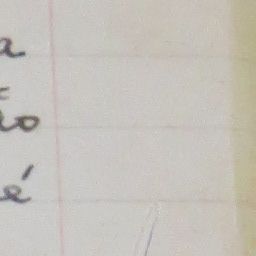 a
ão
é